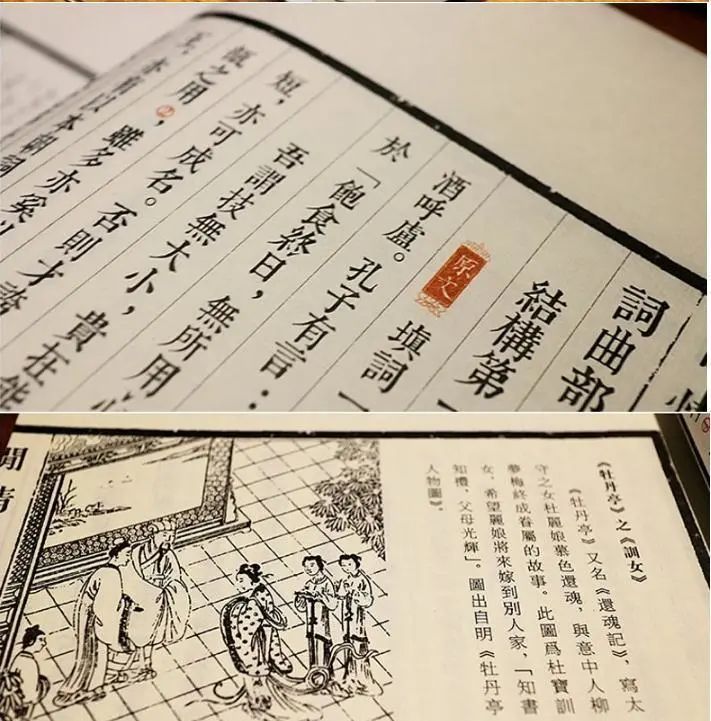 詞曲部
結構第一
原文 填詞一
酒呼盧。孔子有言:
於「飽食終日,無所用心
吾謂技無大小,貴在能
短,亦可成名。否則才誇
瓿之用②,雖多亦奚以
亦有以本朝詞
《牡丹亭》之《訓女》
《牡丹亭》又名《還魂記》,寫太
守之女杜麗娘慕色還魂,與意中人柳
夢梅終成眷屬的故事。此圖爲杜寶訓
女,希望麗娘將來嫁到別人家,「知書
知禮,父母光輝」。圖出自明《牡丹亭
人物圖》。